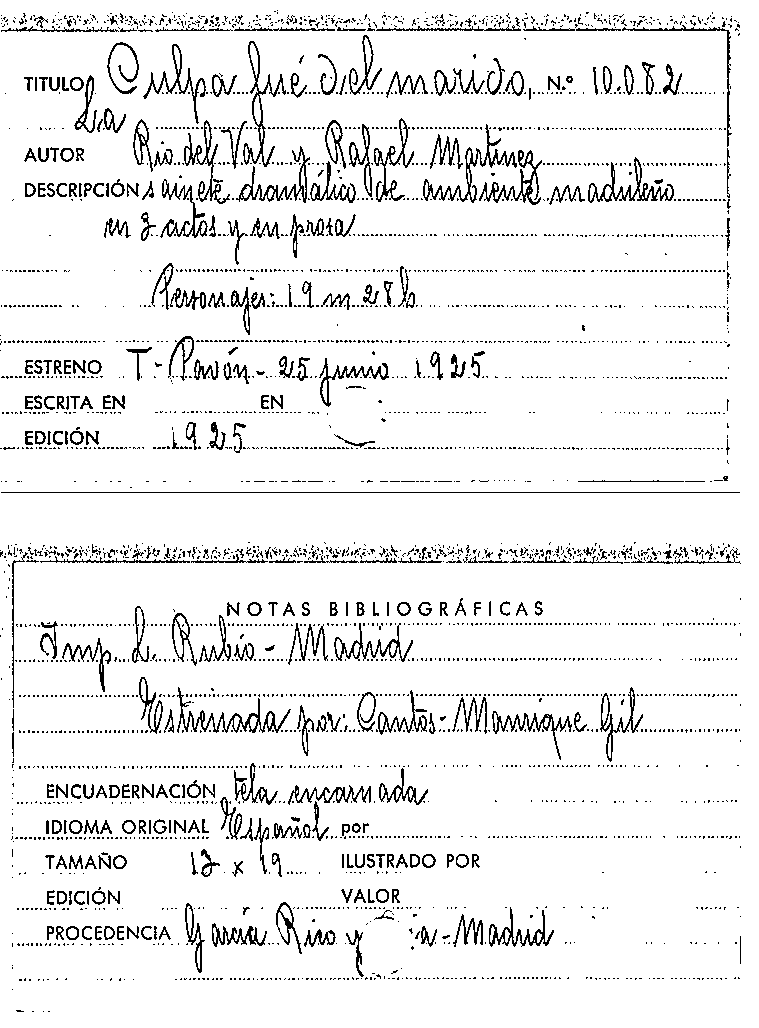 TITULO Culpa fué del marido, N.º 10.082
La
AUTOR Rio del Val y Rafael Martinez
DESCRIPCIÓN sainete dramático de ambiente madrileño
en 3 actos y en prosa
Personajes: 19 m 28 h
ESTRENO T- Pavón- 25 junio 1925
ESCRITA EN EN
EDICIÓN 1925
NOTAS BIBLIOGRÁFICAS
Imp. L. Rubio- Madrid
Estrenada por: Cantos- Manrique Gil
ENCUADERNACIÓN tela encarnada
IDIOMA ORIGINAL Español por
TAMAÑO x 19 ILUSTRADO POR
EDICIÓN VALOR
PROCEDENCIA García Rico y a- Madrid